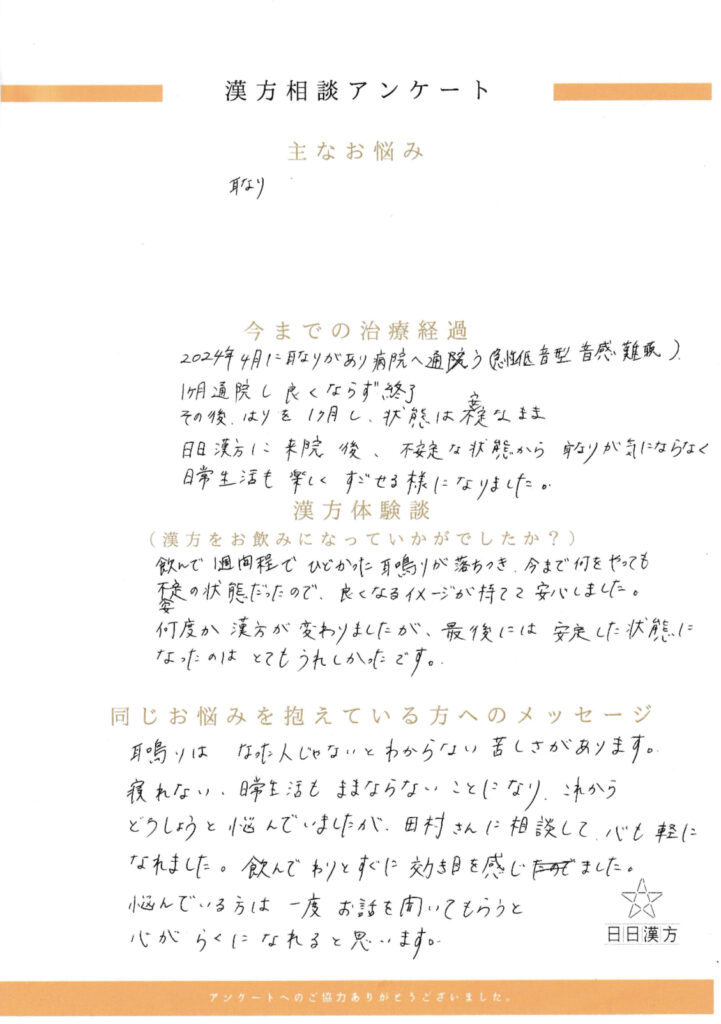 漢方相談アンケート
主なお悩み
耳なり
今までの治療経過
2024年4月に耳なりがあり病院へ通院う(急性低音型 音感難聴)
1ヶ月通院し良くならず終了
その後、はりを1ヶ月し、状態は不安定なまま
日日漢方に来院後、不安定な状態から耳なりが気にならなく
日常生活も楽しくすごせる様になりました。
漢方体験談
(漢方をお飲みになっていかがでしたか?)
飲んで1週間程でひどかった耳鳴りが落ちつき、今まで何をやっても
不安定の状態だったので、良くなるイメージが持てて安心しました。
何度か漢方が変わりましたが、最後には安定した状態に
なったのはとてもうれしかったです。
同じお悩みを抱えている方へのメッセージ
耳鳴りは なった人じゃないとわからない苦しさがあります。
寝れない、日常生活もままならないことになり、これから
どうしようと悩んでいましたが、田村さんに相談して、心も軽に
なれました。飲んでわりとすぐに効き目を感じました。
悩んでいる方は一度お話を聞いてもらうと
心がらくになれると思います。
日日漢方
アンケートへのご協力ありがとうございました。